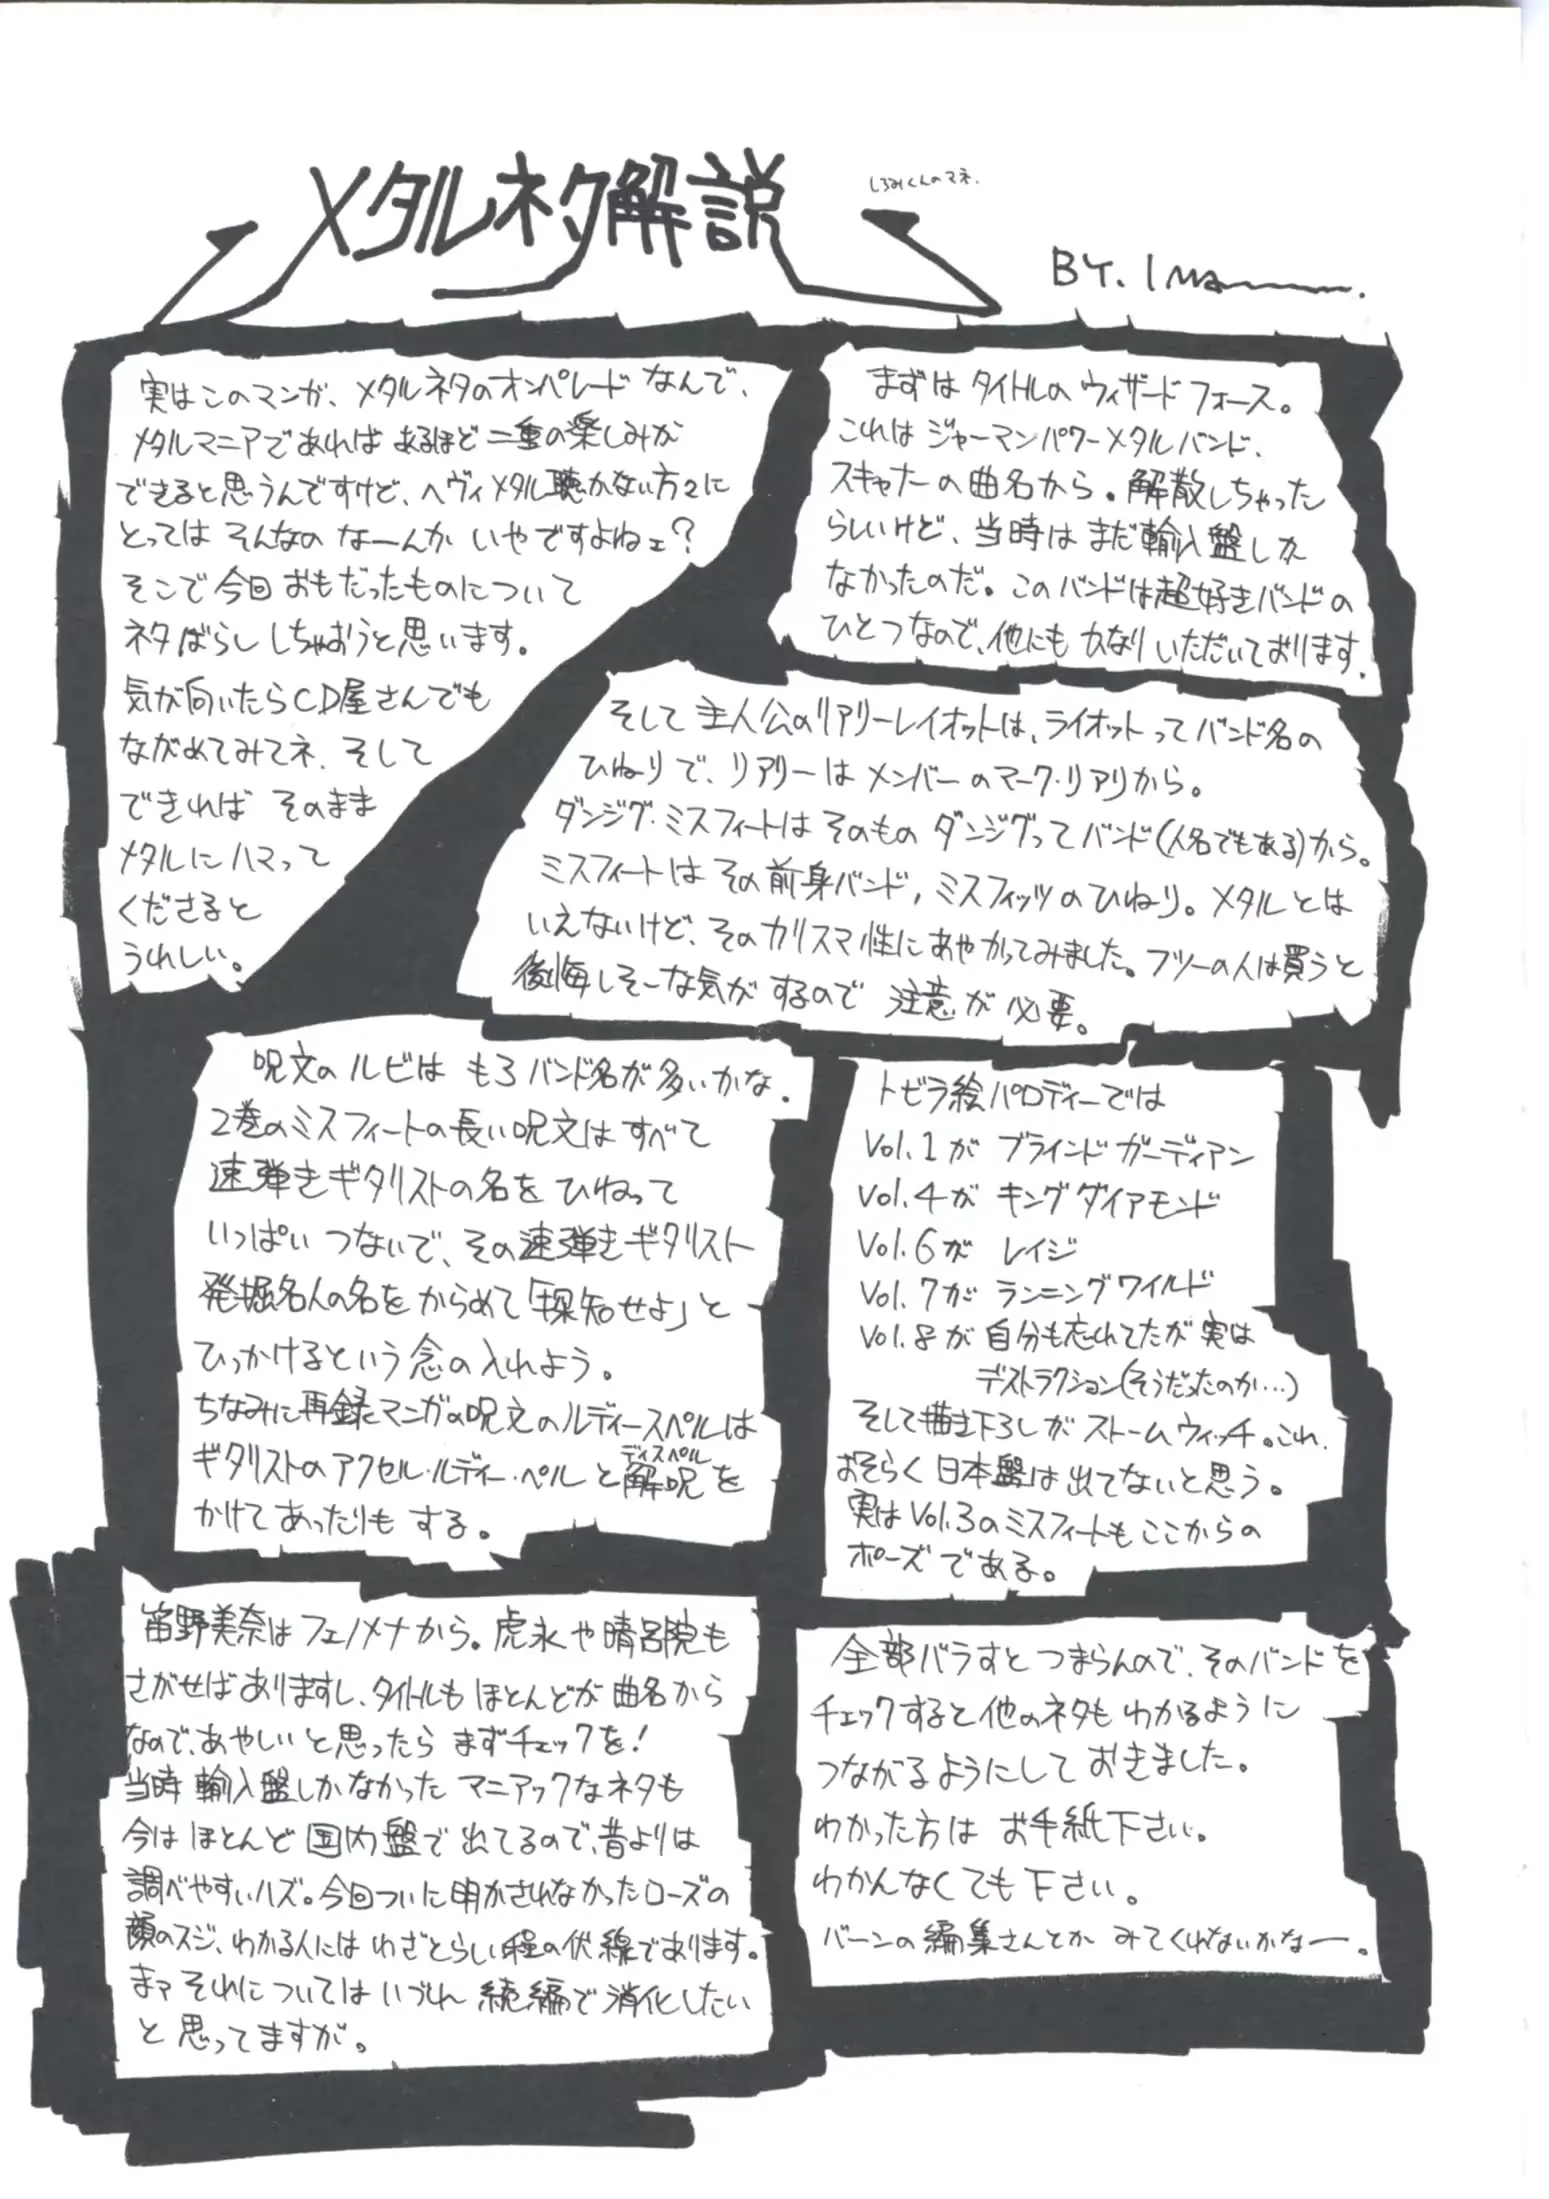 メタルネタ解説
しろみくんのマネ.
BY. IMA
実はこのマンガ、メタルネタのオンパレードなんで、
メタルマニアであればあるほど二重の楽しみが
できると思うんですけど、ヘヴィメタル聴かない方々に
とってはそんなのなーんかいやですよねェ?
そこで今回おもだったものについて
ネタばらししちゃおうと思います。
気が向いたらCD屋さんでも
ながめてみてネ.そして
できればそのまま
メタルにハマって
くださると
うれしい。
まずはタイトルのウィザードフォース。
これはジャーマンパワーメタルバンド、
スキャナーの曲名から。解散しちゃった
らしいけど、当時はまだ輸入盤しか
なかったのだ。このバンドは超好きバンドの
ひとつなので、他にもかなりいただいております.
そして主人公のリアリーレイオットは、ライオットってバンド名の
ひねりで、リアリーはメンバーのマーク・リアリから。
ダンジグ・ミスフィートはそのものダンジグってバンド(人名でもある)から。
ミスフィートはその前身バンド,ミスフィッツのひねり。メタルとは
いえないけど、そのカリスマ性にあやかってみました。フツーの人は買うと
後悔しそーな気がするので注意が必要。
呪文のルビはもろバンド名が多いかな.
2巻のミスフィートの長い呪文はすべて
速弾きギタリストの名をひねって
いっぱいつないで、その速弾きギタリスト
発掘名人の名をからめて「探知せよ」と
ひっかけるという念の入れよう。
ちなみに再録マンガの呪文のルディースペルは
ギタリストのアクセル・ルディー・ペルと解呪を
ディスペル
かけてあったりもする。
トビラ絵パロディーでは
Vol.1がブラインドガーディアン
Vol.4がキングダイアモンド
Vol.6がレイジ
Vol.7がランニングワイルド
Vol.8が自分も忘れてたが実は
デストラクション(そうだったのか…)
そして描き下ろしがストームウィッチ。これ、
おそらく日本盤は出てないと思う。
実はVol.3のミスフィートもここからの
ポーズである。
笛野美奈はフェノメナから。虎永や晴呂院も
さがせばありますし、タイトルもほとんどが曲名から
なので、あやしいと思ったらまずチェックを!
当時輸入盤しかなかったマニアックなネタも
今はほとんど国内盤で出てるので、昔よりは
調べやすいハズ。今回ついに明かされなかったローズの
顔のスジ、わかる人にはわざとらしい程の伏線であります。
まァそれについてはいづれ続編で消化したい
と思ってますが。
全部バラすとつまらんので、そのバンドを
チェックすると他のネタもわかるように
つながるようにしておきました。
わかった方はお手紙下さい。
わかんなくても下さい。
バーンの編集さんとかみてくれないかなー。